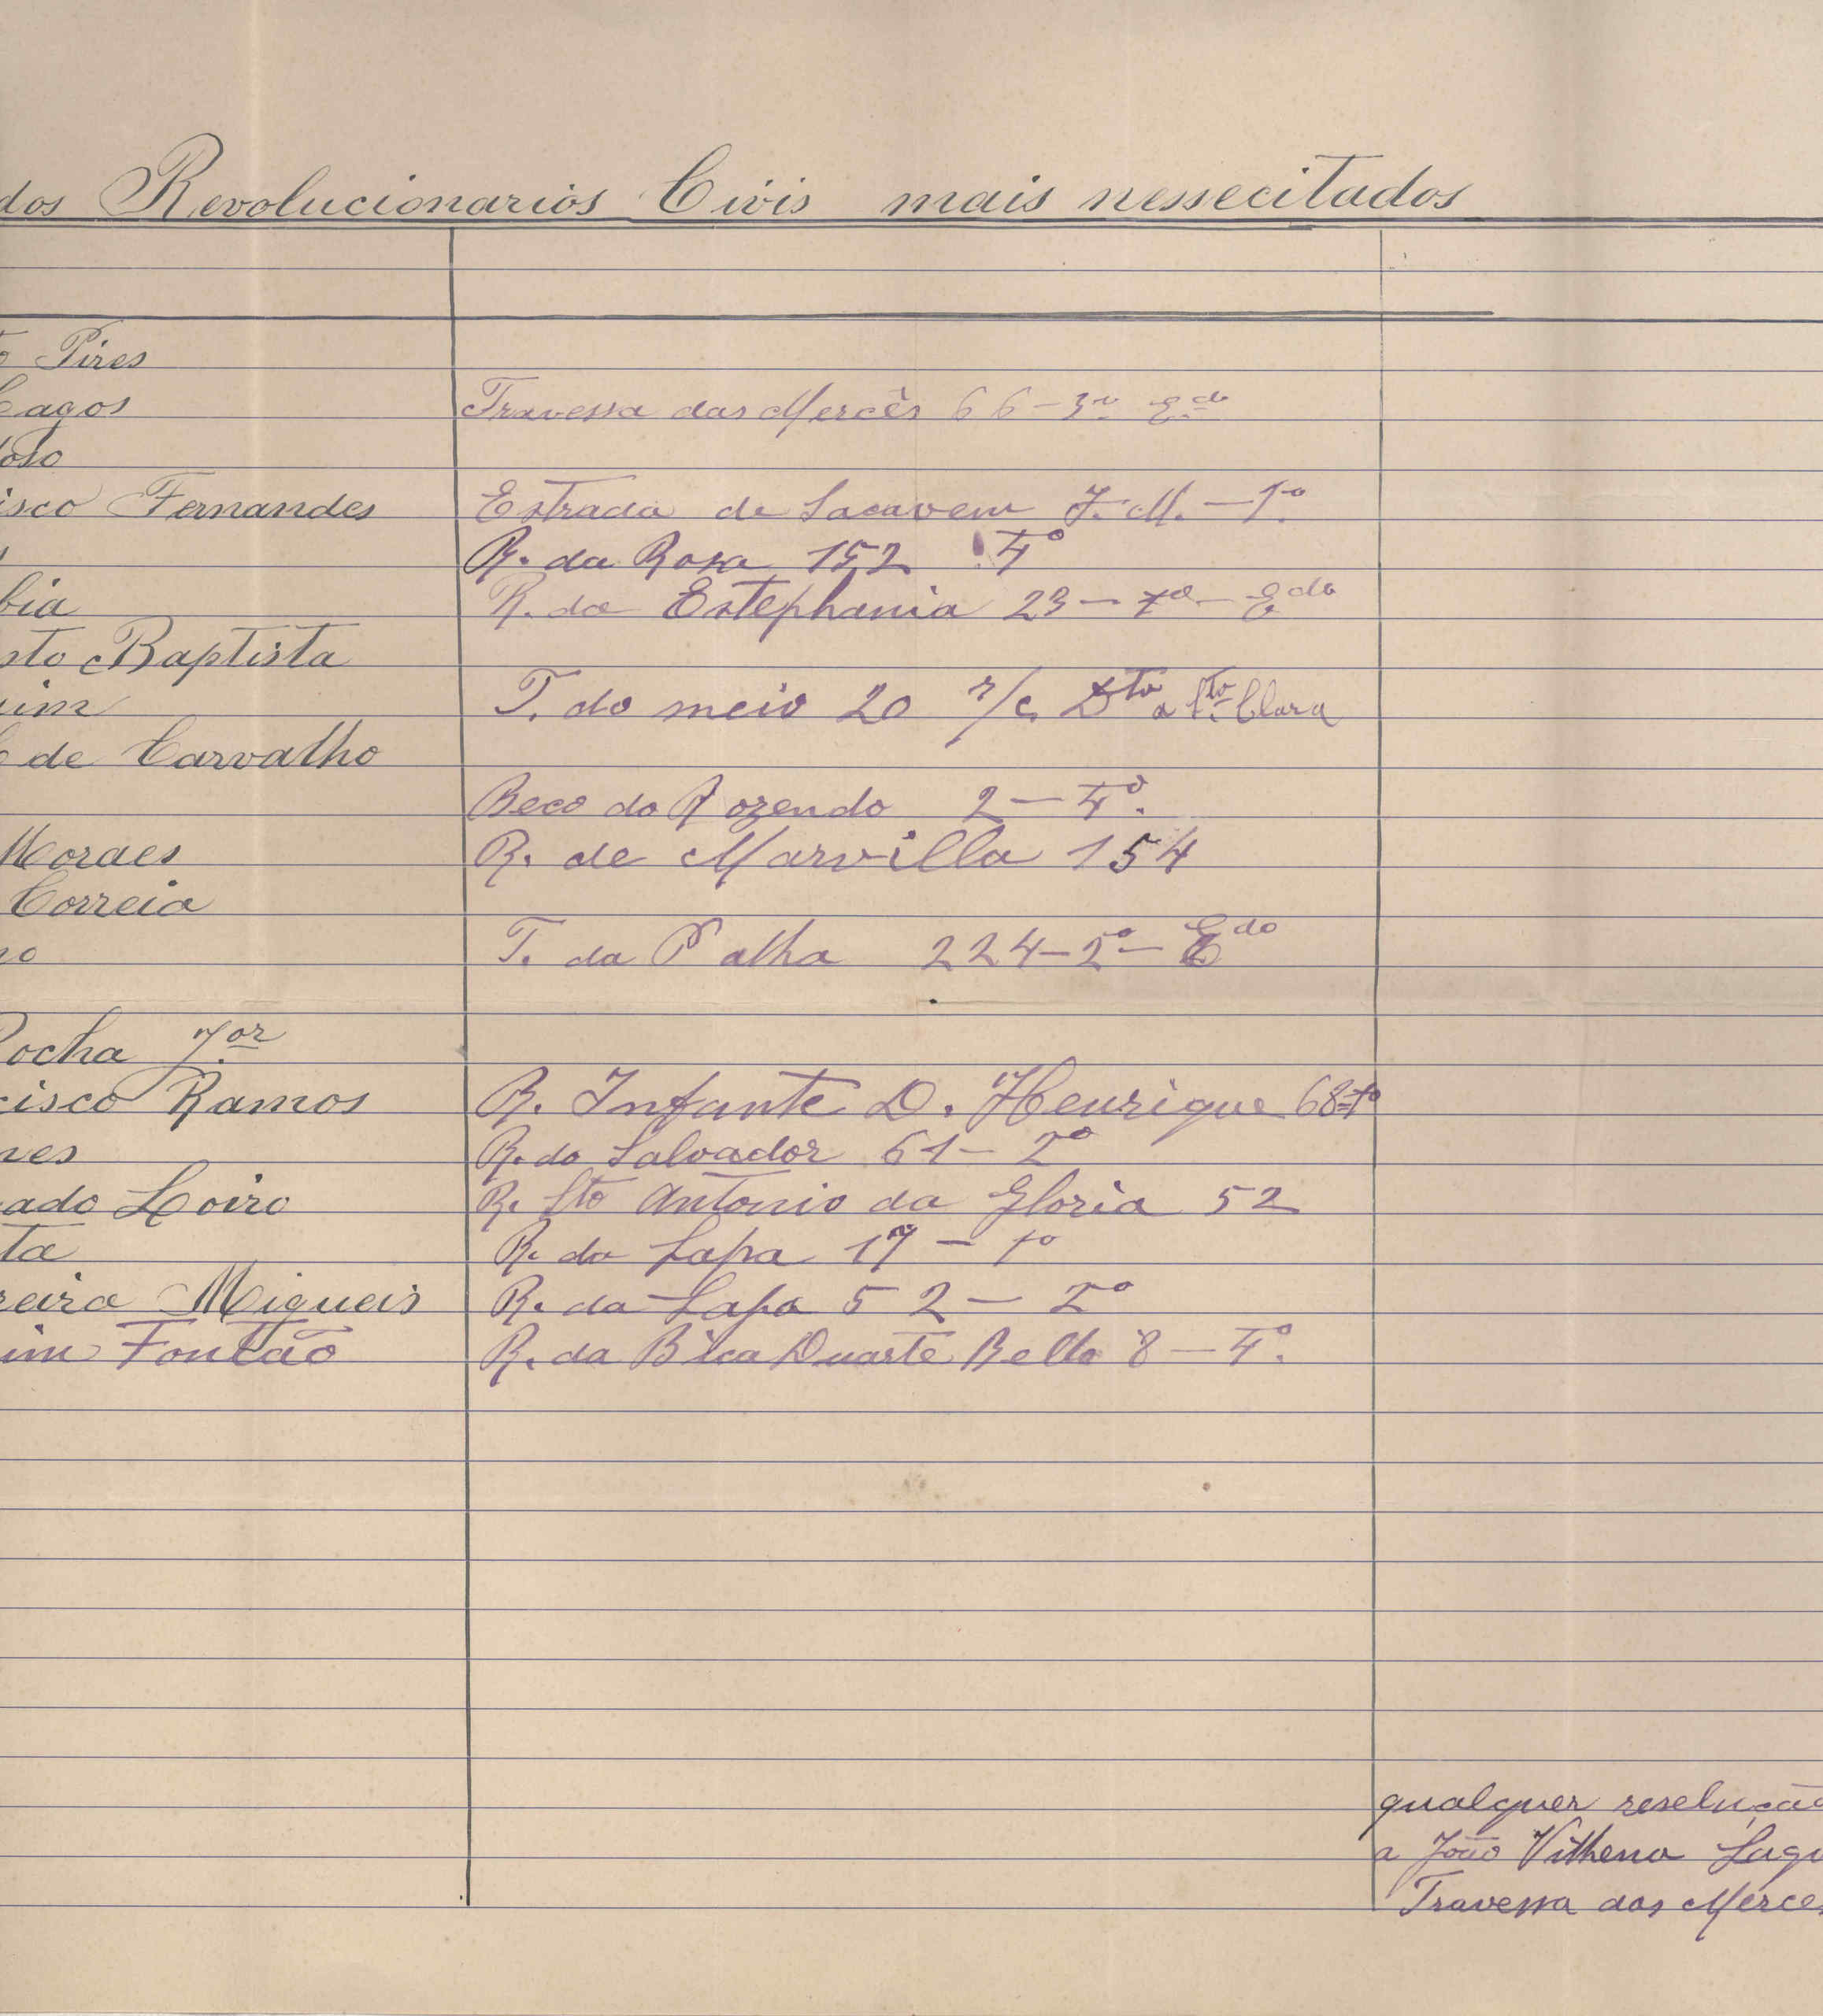 dos Revolucionarios Civis mais nessecitados
Pires
Lagos Travessa das Mercês 66-3º E.do
doso
isco Fernandes Estrada de Sacavem J. M. - 1º
R. da Rosa 152 4º
bia R. da Estephania 23 - 1º - Edo
sto Baptista
uim T. do meio 20 r/c Dto a Sta Clara
de Carvalho
Beco do Rozendo 2 - 4º
Moraes R. de Marvilla 154
Correia
no T. da Palha 224 - 2º - Edo
Rocha Jor
cisco Ramos R. Infante D. Henrique 68-1º
nes R. do Salvador 61 - 2º
ado Loiro R. Sto Antonio da Gloria 52
ta R. da Lapa 17 - 1º
reira Migueis R. da Lapa 52 - 2º
uim Fontão R. da Bica Duarte Bello 8 - 4º
qualquer reselução
a João Vilhena Lago
Travessa das Merces